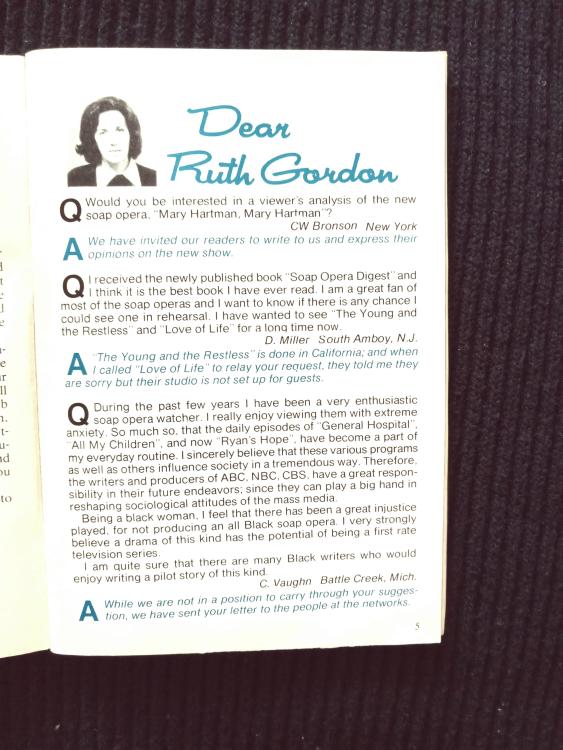 Dear
Ruth Gordon
Q Would you be interested in a viewer's analysis of the new
soap opera, "Mary Hartman, Mary Hartman"?
CW Bronson New York
A We have invited our readers to write to us and express their
opinions on the new show.
Q I received the newly published book "Soap Opera Digest" and
I think it is the best book I have ever read. I am a great fan of
most of the soap operas and I want to know if there is any chance I
could see one in rehearsal. I have wanted to see "The Young and
the Restless" and "Love of Life" for a long time now.
D. Miller South Amboy, N.J.
A "The Young and the Restless" is done in California; and when
I called "Love of Life" to relay your request, they told me they
are sorry but their studio is not set up for guests.
Q During the past few years I have been a very enthusiastic
soap opera watcher. I really enjoy viewing them with extreme
anxiety. So much so, that the daily episodes of "General Hospital",
"All My Children", and now "Ryan's Hope", have become a part of
my everyday routine. I sincerely believe that these various programs
as well as others influence society in a tremendous way. Therefore,
the writers and producers of ABC, NBC, CBS, have a great respon-
sibility in their future endeavors; since they can play a big hand in
reshaping sociological attitudes of the mass media.
Being a black woman, I feel that there has been a great injustice
played, for not producing an all Black soap opera. I very strongly
believe a drama of this kind has the potential of being a first rate
television series.
I am quite sure that there are many Black writers who would
enjoy writing a pilot story of this kind.
C. Vaughn Battle Creek, Mich.
A While we are not in a position to carry through your sugges-
tion, we have sent your letter to the people at the networks.
5